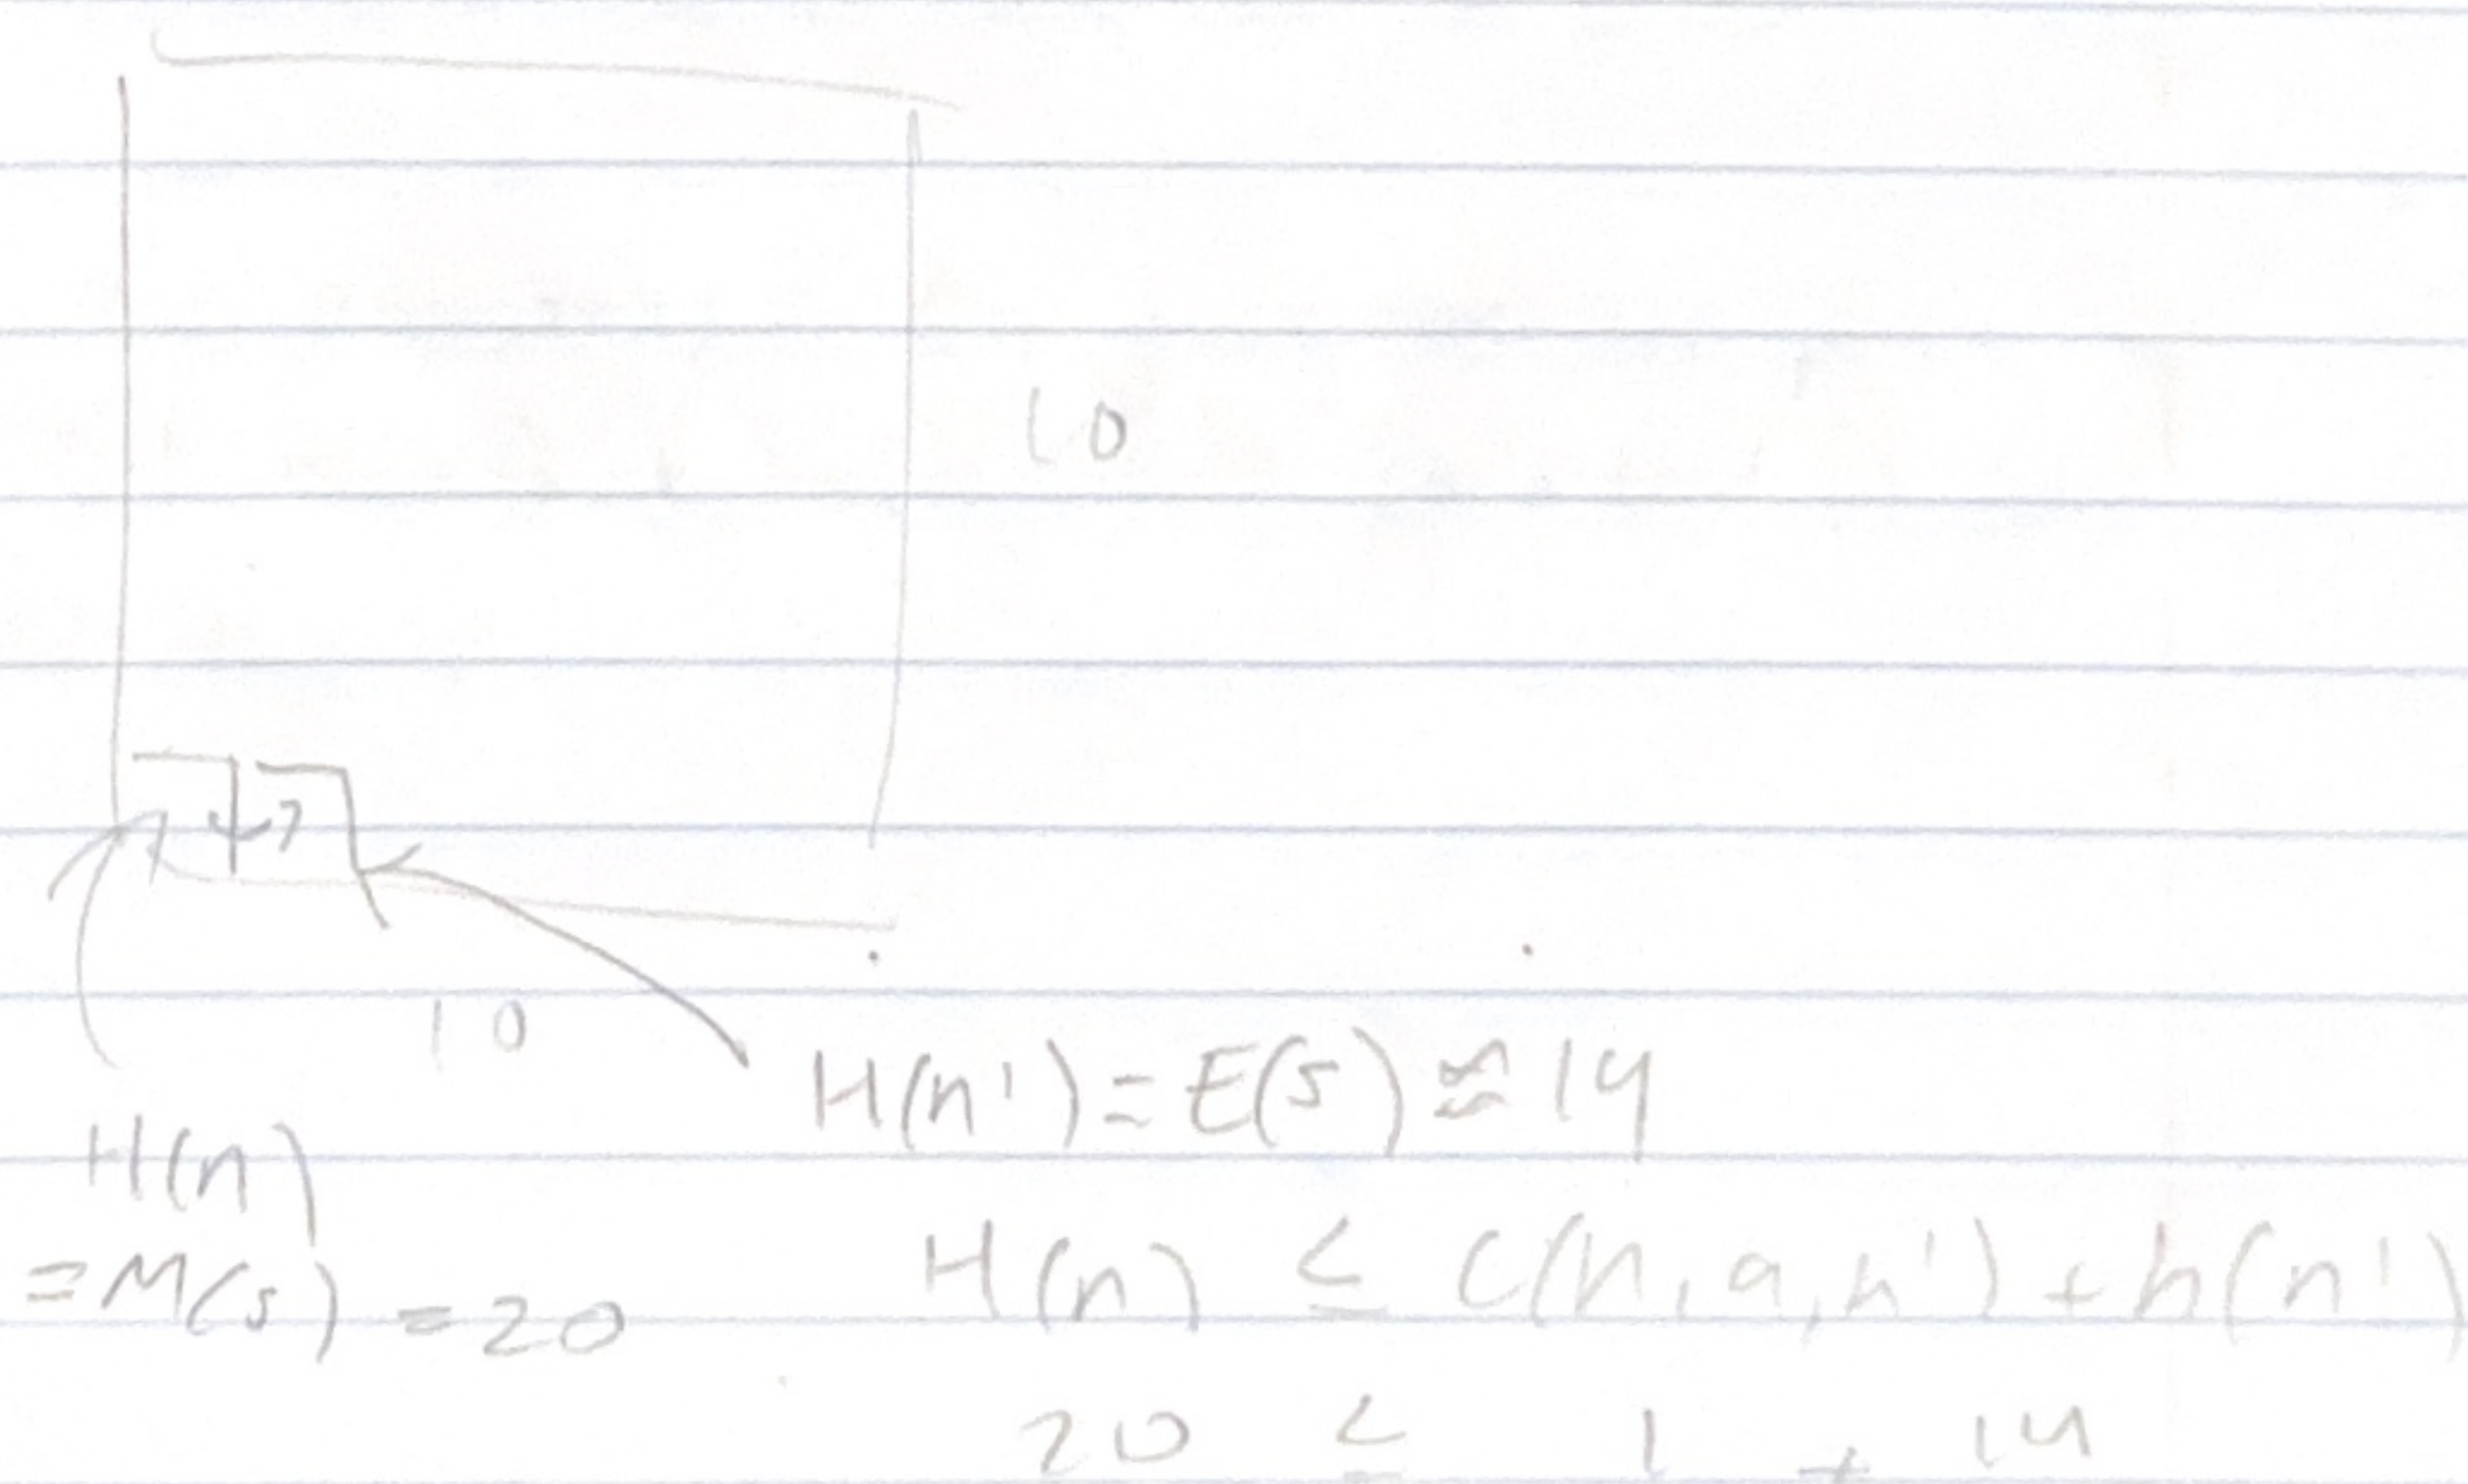 10
10
H(n') = E(s) ≈ 14
H(n)
= M(s) = 20
H(n) ≤ C(n, a, n') + h(n')
20 ≤ 1 + 14